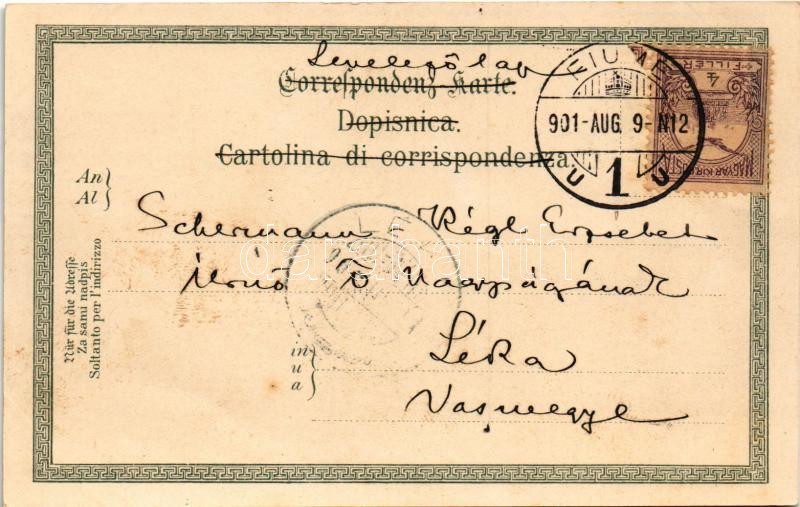 Levelező lap
Correspondenz-Karte.
Dopisnica.
Cartolina di corrispondenza.
FIUME
901-AUG. 9-N12
1
U U
4
FILLÉR
MAGYAR KIR. POSTA
An
Al
Schermann Régl Erzsébet
Úrnő Ő Nagyságának
Nur für die Adresse
Za samu nadpis
Soltanto per l'indirizzo
in
u
a
Léka
Vasmegye
darabanth